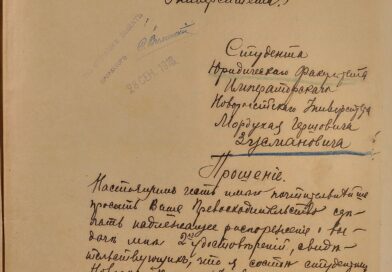 Университета.
28 СЕН. 191
Студента
Юридическаго Факультета
Императорскаго
Новороссійскаго Университета
Мордуха Гершовича
Зусмановича
Прошеніе.
Настоящимъ честь имѣю почтительнѣйше
просить Ваше Превосходительство сдѣ-
лать надлежащее распоряженіе о вы-
дачѣ мнѣ 2хъ удостовѣреній, свидѣ-
тельствующихъ, что я состою студентомъ